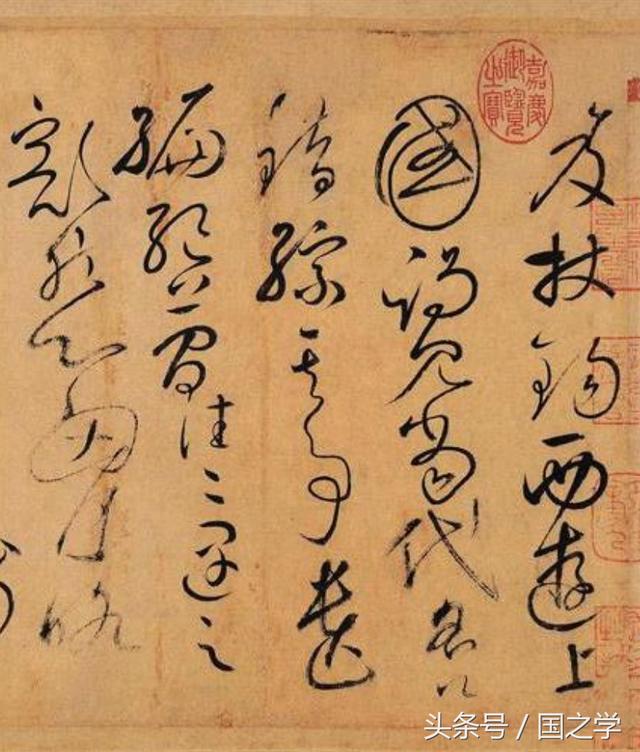 笈杖錫西遊上
國謁見當代名公
錯綜其事遺
編絕簡往々遇之
豁然心胸略
嘉慶御覽之寶
头条号 / 国之学